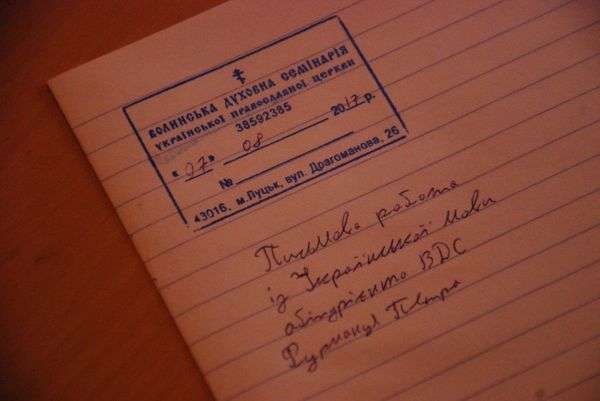 ВОЛИНСЬКА ДУХОВНА СЕМІНАРІЯ
УКРАЇНСЬКОЇ ПРАВОСЛАВНОЇ ЦЕРКВИ
38592385
« 07 » 08 2017 р.
№
43016, м.Луцьк, вул. Драгоманова, 26
Письмова робота
із Української мови
абітурієнта ВДС
Фурманця Петра